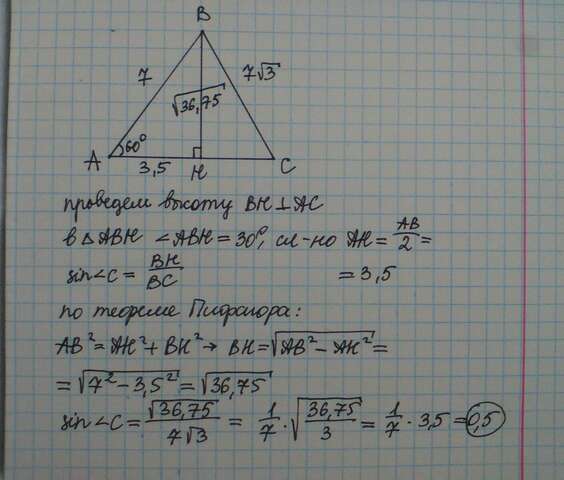 B
7
7√3
√36,75
60°
A
3,5
H
C
проведем высоту BH⊥AC
в △ABH ∠ABH = 30°, сл-но AH = AB/2 =
sin∠C = BH/BC
= 3,5
по теореме Пифагора:
AB² = AH² + BH² → BH = √AB² − AH² =
= √7² − 3,5² = √36,75
sin∠C = √36,75/7√3 = 1/7 · √36,75/3 = 1/7 · 3,5 = 0,5